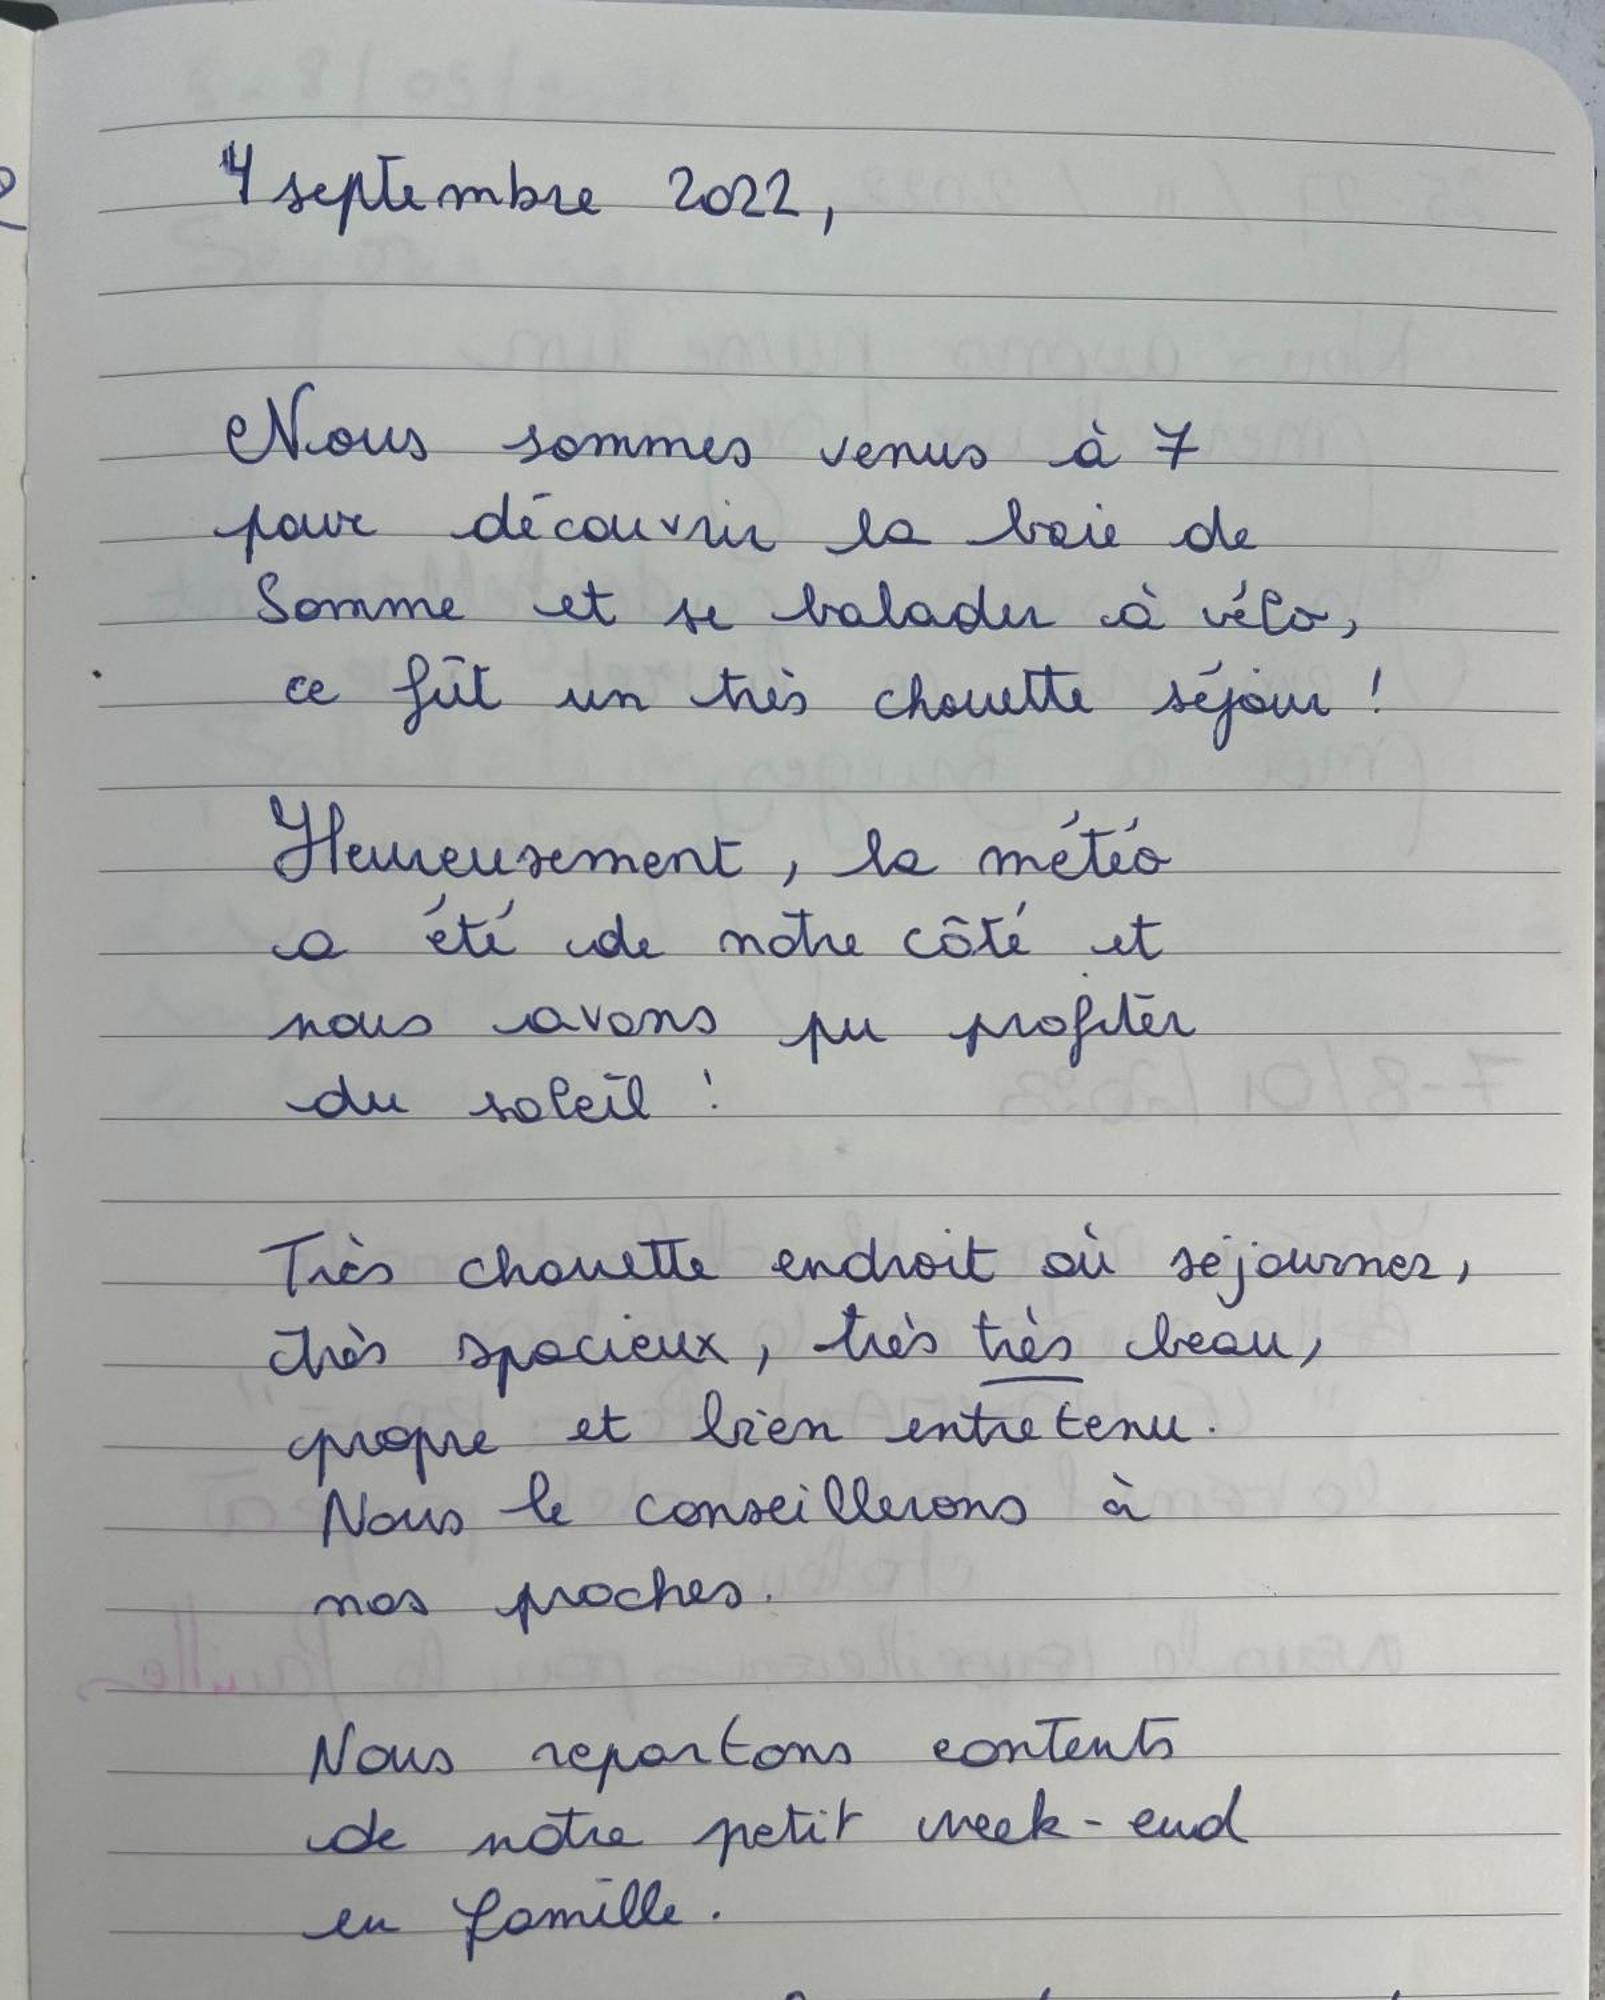 4 septembre 2022,
Nous sommes venus à 7
pour découvrir la baie de
Somme et se balader à vélo,
ce fût un très chouette séjour !
Heureusement, la météo
a été de notre côté et
nous avons pu profiter
du soleil !
Très chouette endroit où séjourner,
très spacieux, très très beau,
propre et bien entretenu.
Nous le conseillerons à
nos proches.
Nous repartons contents
de notre petit week-end
en famille.